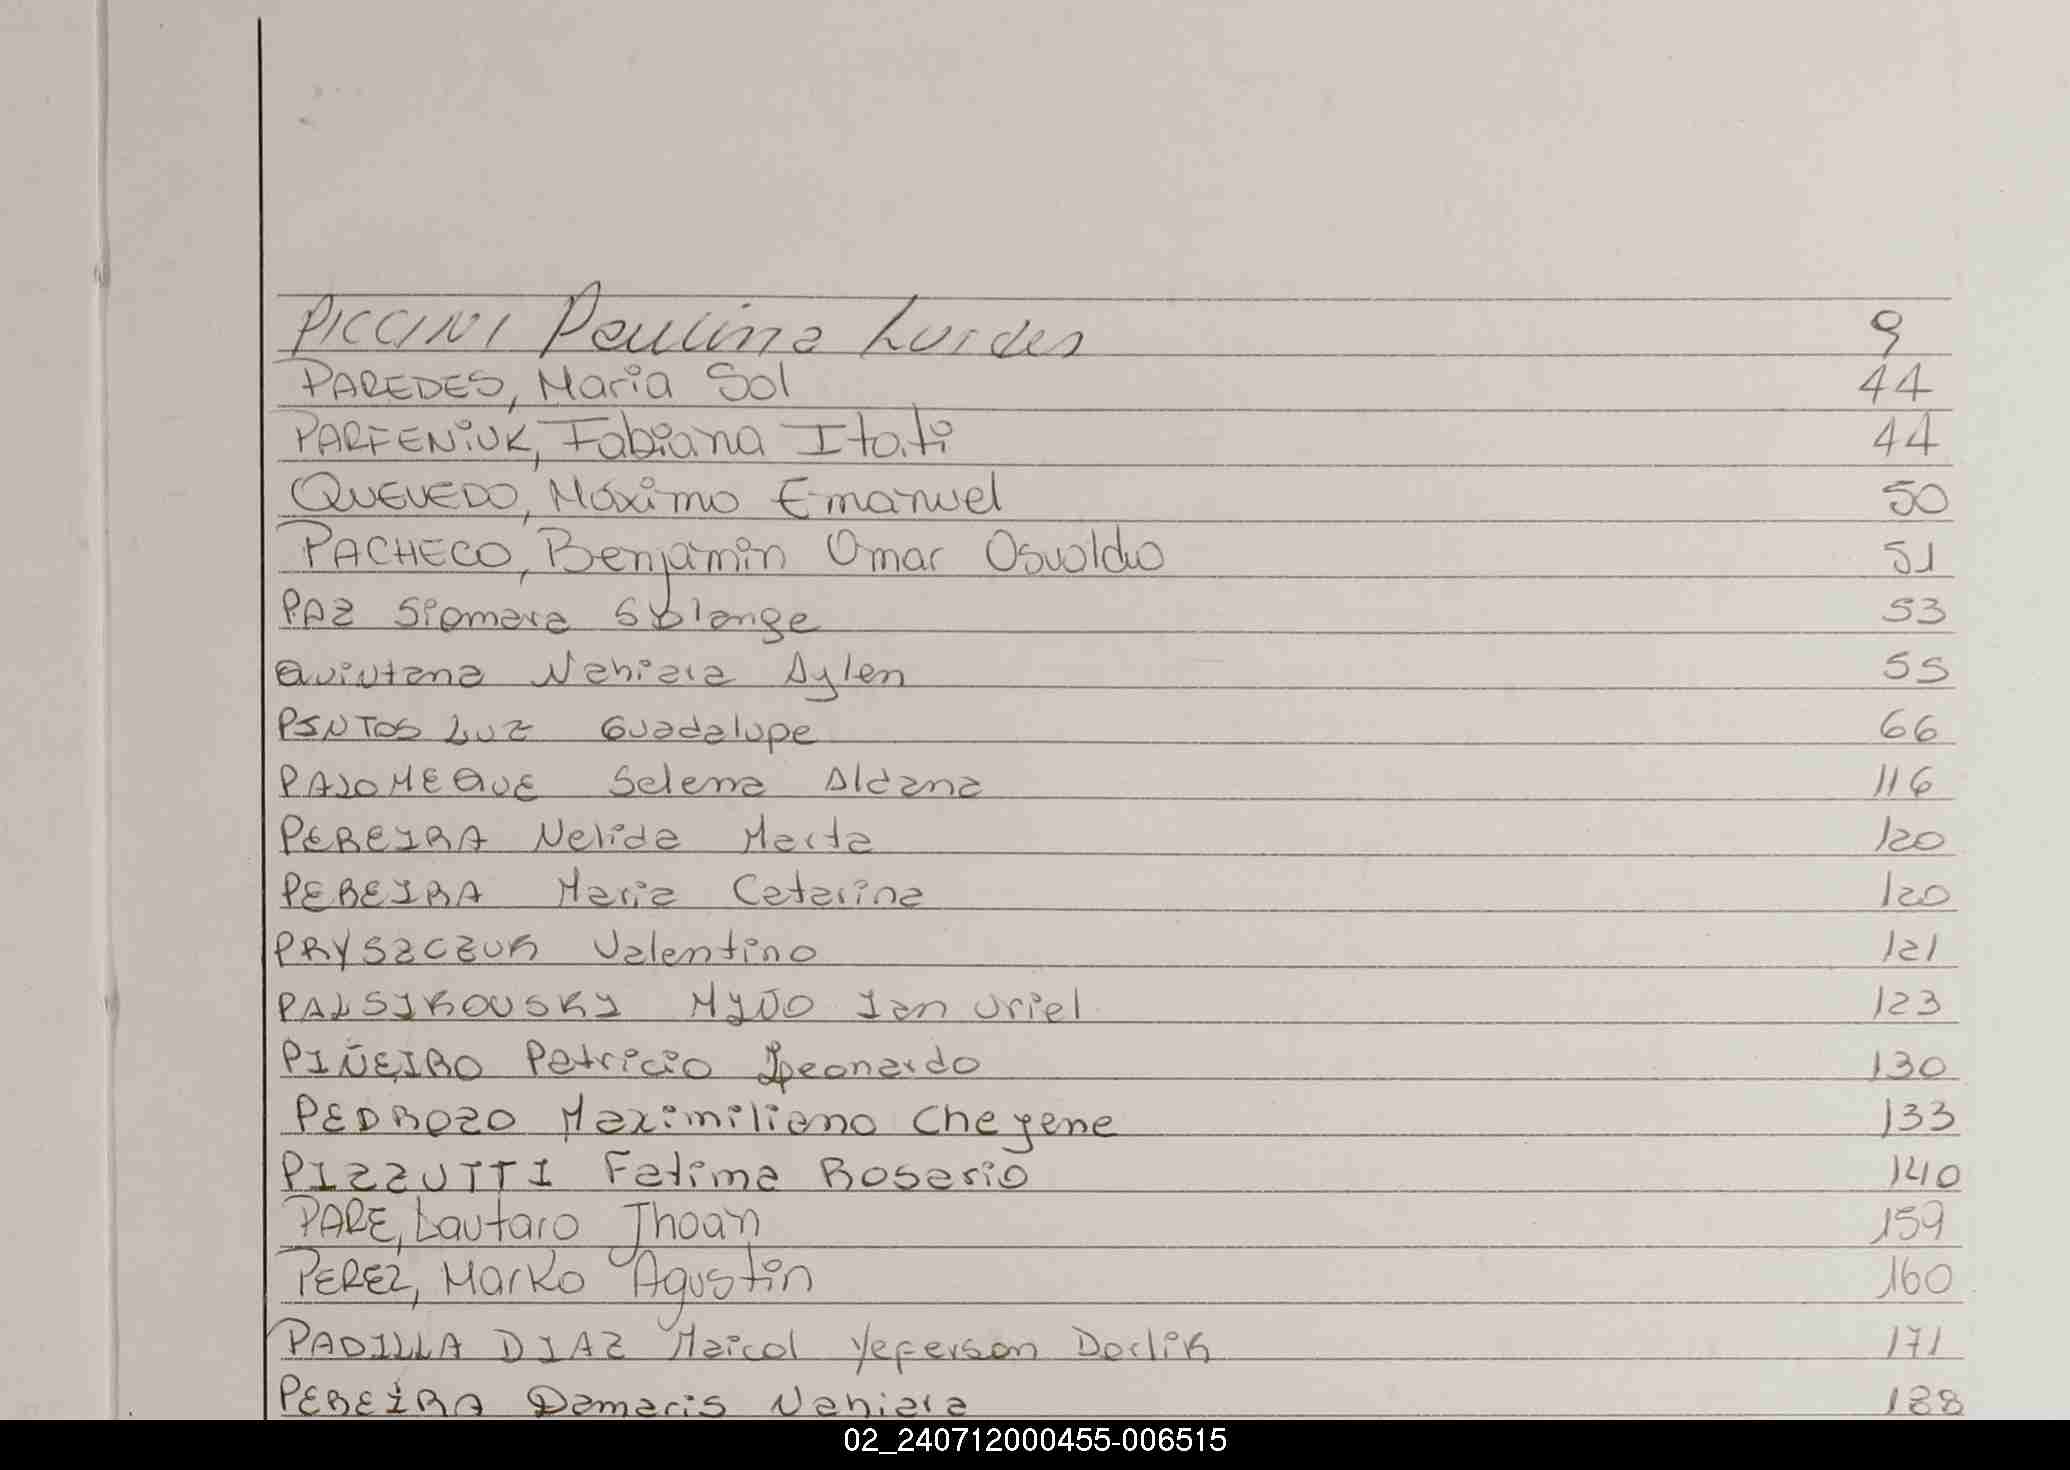 PICCINI Paulina Lurdes 9
PAREDES, Maria Sol 44
PARFENIUK, Fabiana Itati 44
QUEVEDO, Máximo Emanuel 50
PACHECO, Benjamin Omar Osvaldo 51
PAZ Siomara Solange 53
Quintana Nahiara Aylen 55
PINTOS LUZ Guadalupe 66
PALOMEQUE Selena Aldana 116
PEREIRA Nelida Marta 120
PEREIRA Maria Catarina 120
PRYSZCZUK Valentino 121
PALSIKOVSKY Ian Uriel 123
PIÑEIRO Patricio Leonardo 130
PEDROZO Maximiliano Cheyene 133
PIZZUTTI Fatima Rosario 140
PARE, Lautaro Jhoan 159
PEREZ, Marko Agustin 160
PADILLA DIAZ Maicol Yeferson Darlik 171
PEREIRA Damaris Nahiara 188
02_240712000455-006515